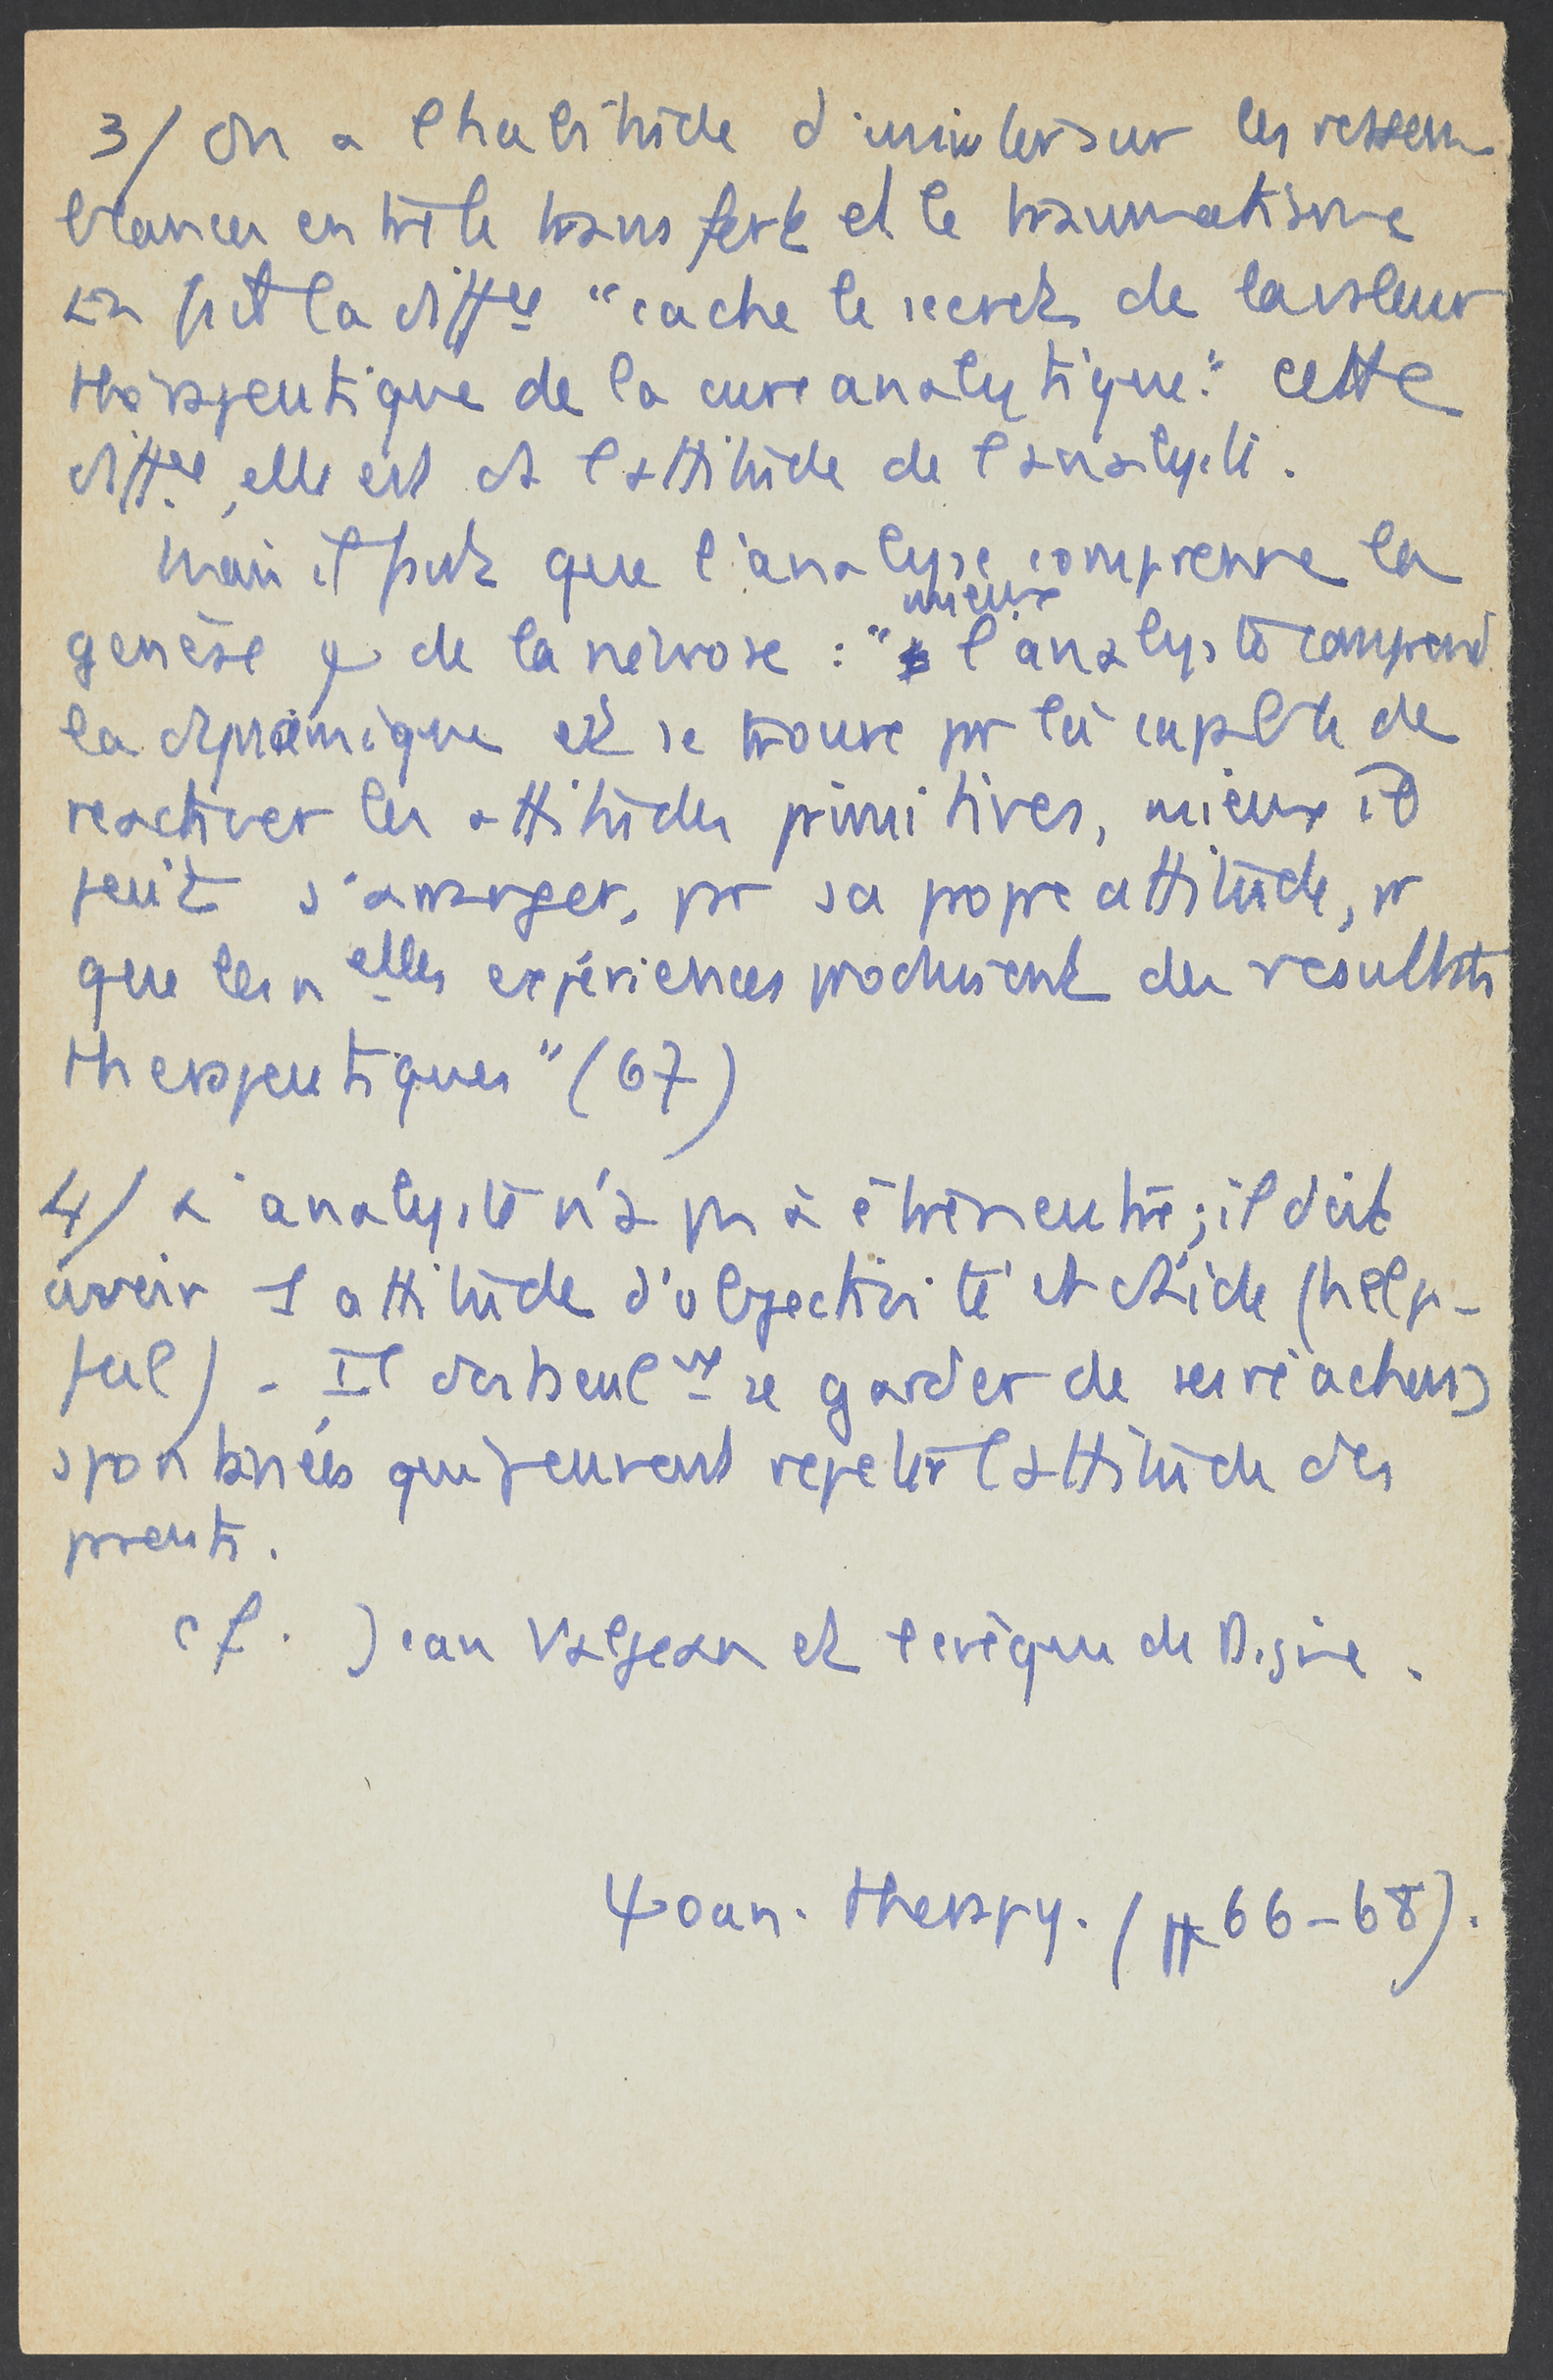 3/ On a l'habitude d'insister sur les ressem
blances entre le transfert et le traumatisme
En fait la diffce "cache le secret de la valeur
thérapeutique de la cure analytique." cette
diffce, elle est ds l'attitude de l'analyste.
Mais il faut que l'analyse comprenne la
genèse ψ de la névrose : " mieux l'analyste comprend
la dynamique et se trouve par là capable de
reactiver les attitudes primitives, mieux il
peut s'arranger, par sa propre attitude, pr
que les nelles expériences produisent des resultats
therapeutiques" (67)
4/ L'analyste n'a pas à être neutre ; il doit
avoir 1 attitude d'objectivité et d'aide (help-
ful) - Il doit seulmt se garder de ses réactions
spontanées qui peuvent repeter l'attitude des
parents.
cf. Jean Valjean et l'evêque de Digne.
ψoan. therapy. (pp 66-68).